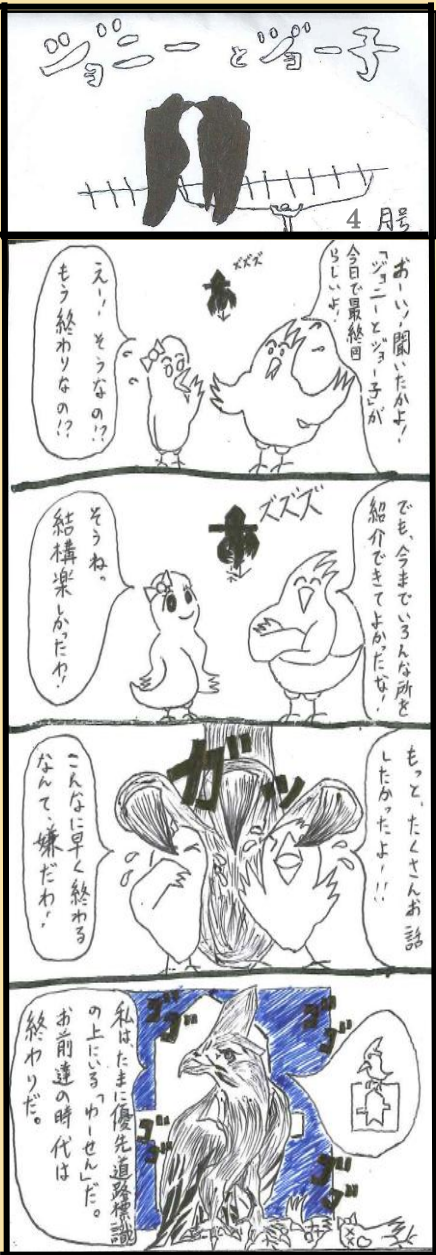 ジョニーとジョー子
4月号
おーい!聞いたかよ!
「ジョニーとジョー子」が
今日で最終回
らしいよ!
ズズズ
えー!そうなの!?
もう終わりなの!?
でも、今までいろんな所を
紹介できてよかったな!
ズズズ
そうね。
結構楽しかったわ!
もっと、たくさんお話
したかったよ!!
ガッ
こんなに早く終わる
なんて、嫌だわ!
ゴゴ
ゴゴ
ゴゴ
ゴゴ
私は、たまに優先道路標識
の上にいる「ゆーせん」だ。
お前達の時代は
終わりだ。